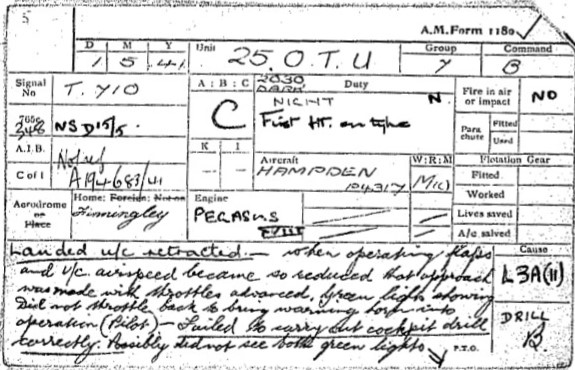 5
A.M. Form 1180
D M Y Unit Group Command
1 5 41 25. O. T. U 7 B
Signal No T. 710 A : B : C 2030 DARK Duty
C NIGHT N. Fire in air or impact NO
765c 348 NSD15/5. First HF. on type Para chute Fitted
Used
A.I.B. K I Aircraft W : R : M Flotation Gear
C of I A194683/41 HAMPDEN M(c) Fitted
P4317 Worked
Aerodrome or Place Home: Foreign: Not on Engine Lives saved
Finningley PEGASUS XVIII A/c salved
Landed u/c retracted — when operating flaps Cause
and u/c. airspeed became so reduced that approach L3A(11)
was made with throttles advanced, Green light showing
Did not throttle back to bring warning horn into DRILL
operation (Pilot) — Failed to carry out cockpit drill B
correctly. Possibly did not see both green lights P.T.O.